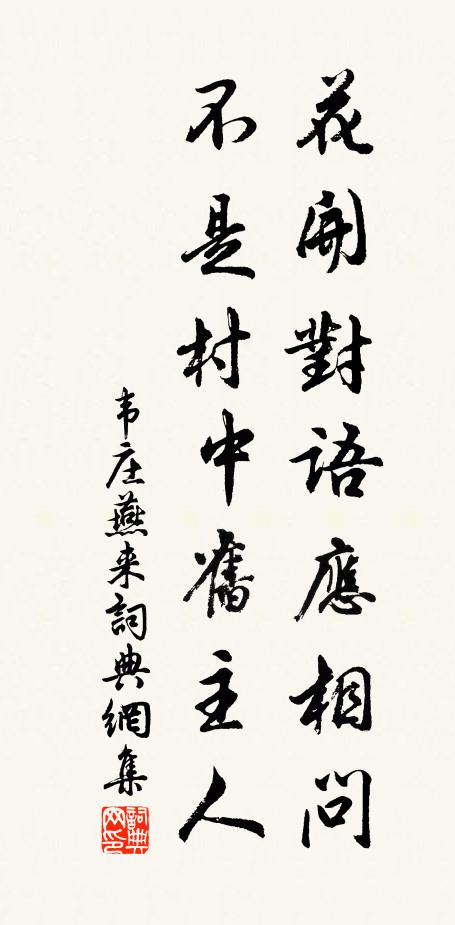 花開對語應相問
不是村中舊主人
韦庄燕来詞典網集
詞典网印